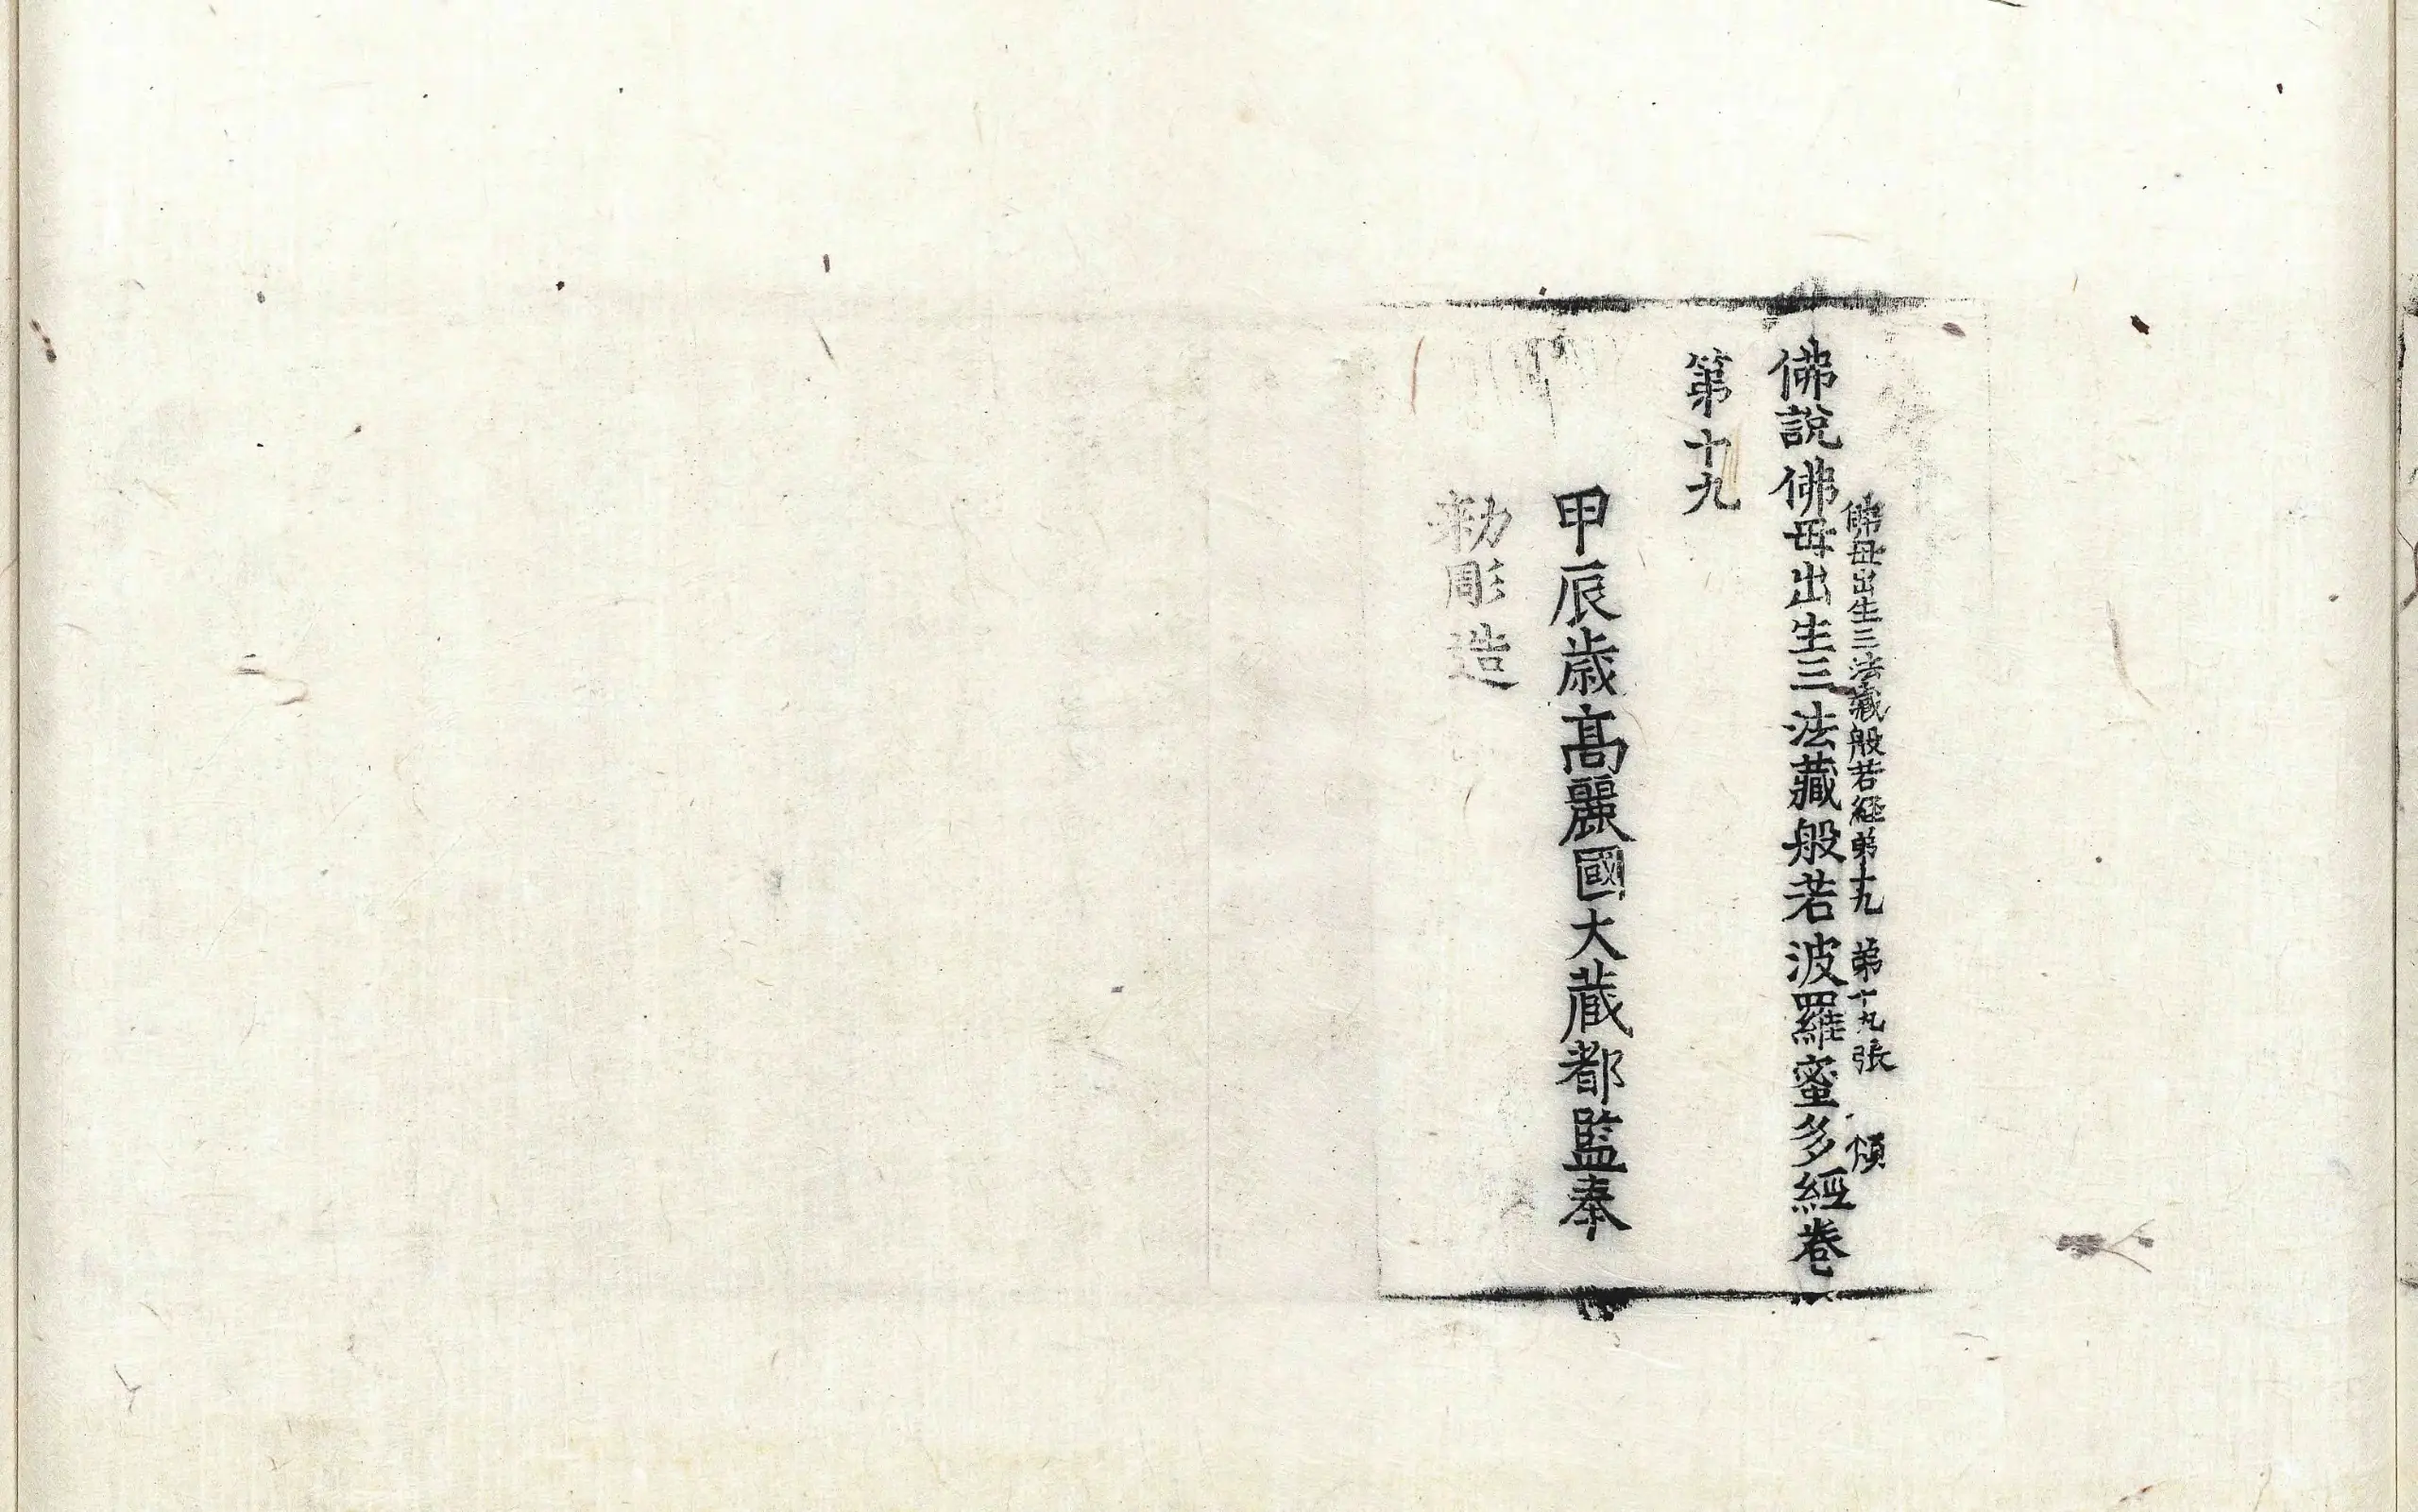 佛母出生三法藏般若経弟十九 弟十九張 煩
佛說佛母出生三法藏般若波羅蜜多經卷
第十九
甲辰歳高麗國大藏都監奉
勅彫造